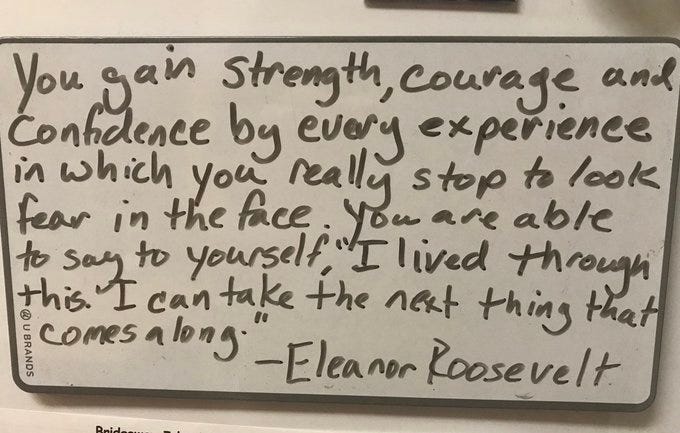 You gain strength, courage and
Confidence by every experience
in which you really stop to look
fear in the face. You are able
to say to yourself, "I lived through
this. "I can take the next thing that
comes along."
—Eleanor Roosevelt
U BRANDS